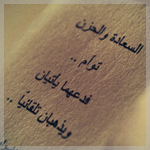 السعادة والحزن
توأم ..
فدعهما يأتيان
ويذهبان تلقائياً ..